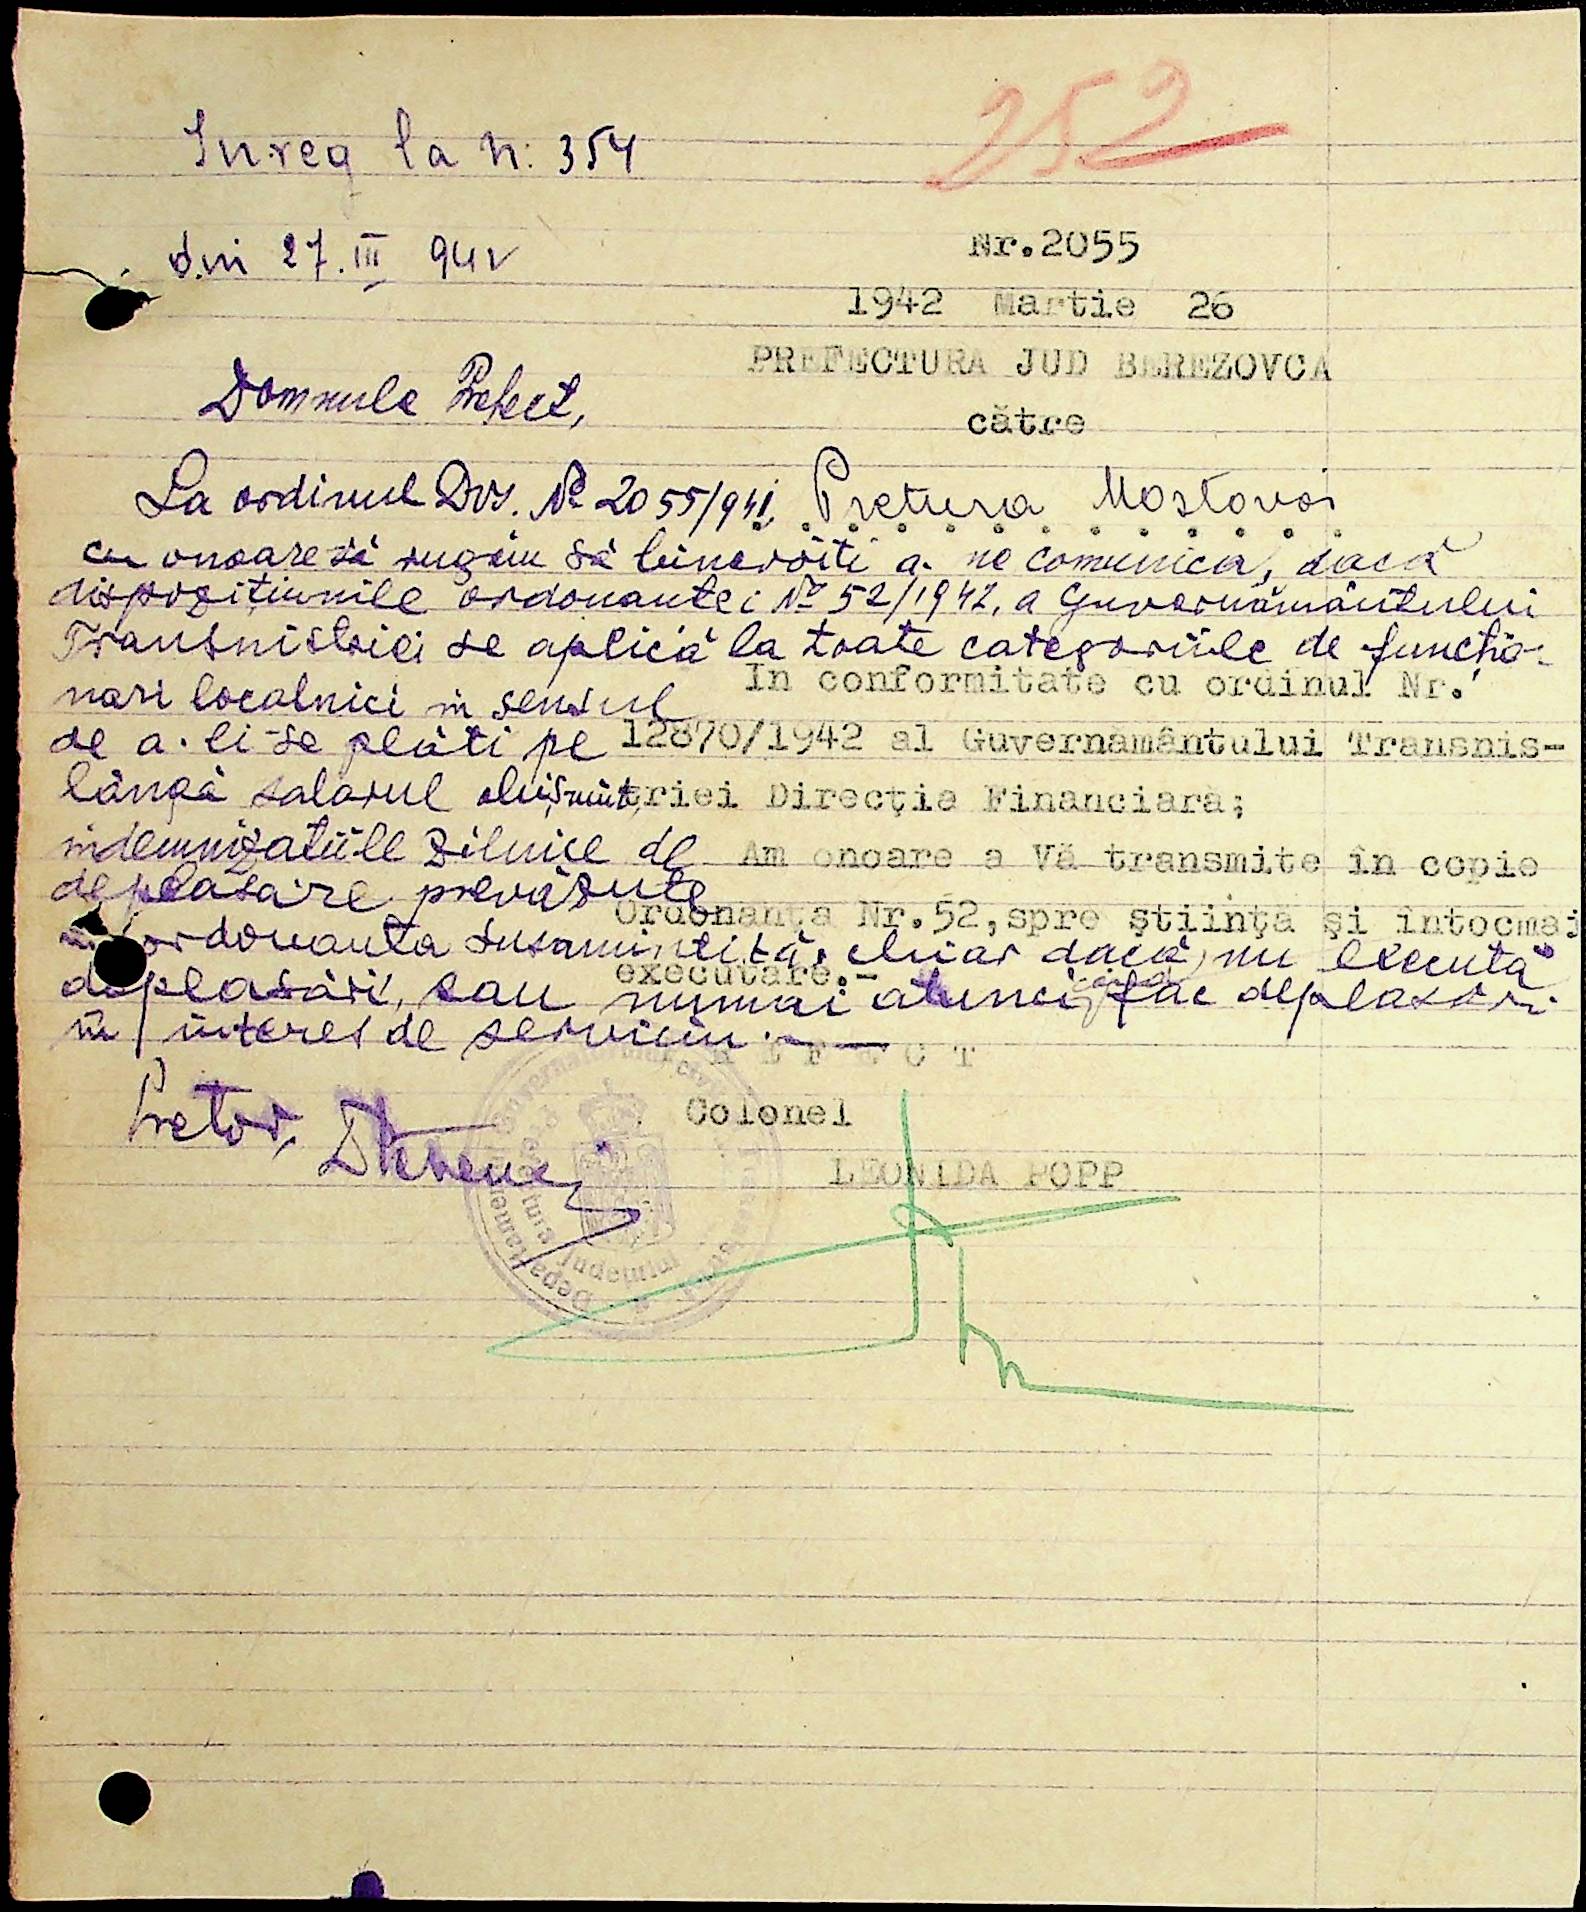 252
Inreg la N: 354
din 27.III 942
Nr.2055
1942 Martie 26
PREFECTURA JUD BEREZOVCA
către
Pretura Mostovoi
In conformitate cu ordinul Nr.
12870/1942 al Guvernamântului Transnis-
triei Direcţia Financiară;
Am onoare a Vă transmite în copie
Ordonanţa Nr.52,spre ştiinţă şi întocmai
executare.-
PREFECT
Colonel
LEONIDA POPP
Domnule Prefect,
La ordinul Dvs. No 2055/941,
cu onoare vă rugăm să binevoiti a ne comunica, dacă
dispozițiunile ordonantei No 52/1942, a Guvernământului
Transnistriei se aplică la toate categoriile de functio-
nari localnici in sensul
de a li se plăti pe
lângă salarul obişnuit,
indemnizatiile zilnice de
deplasare prevăzute
in ordonanta susamintită, chiar dacă nu execută
deplasări, sau numai atunci când fac deplasări
in interes de serviciu.
Pretor,